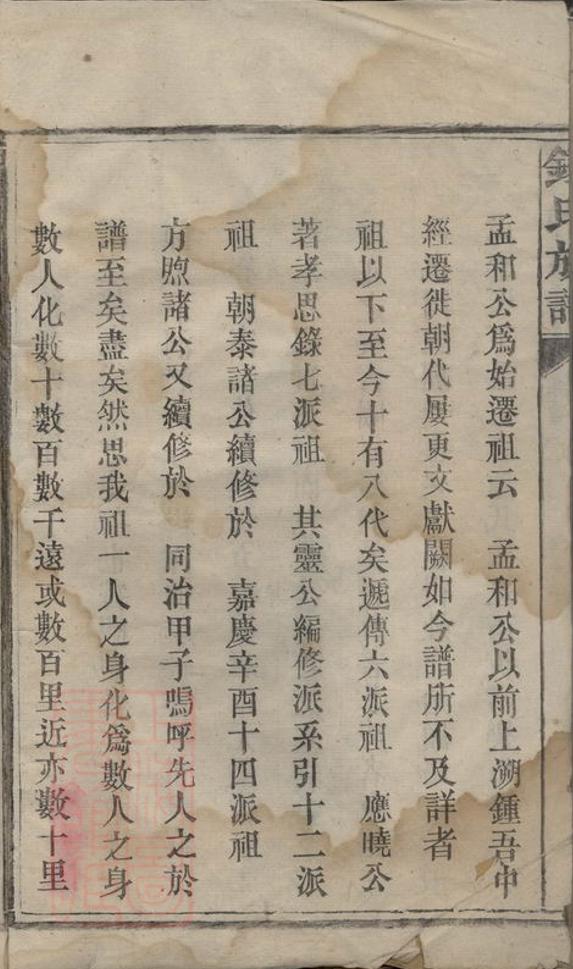 鍾氏族譜
孟和公爲始遷祖云　孟和公以前上溯鍾吾中
經遷徙朝代屢更文獻闕如今譜所不及詳者
祖以下至今十有八代矣遞傳六派祖　應曉公
著孝思錄七派祖　其靈公編修派系引十二派
祖　朝泰諸公續修於　嘉慶辛酉十四派祖
方煦諸公又續修於　同治甲子嗚呼先人之於
譜至矣盡矣然思我祖一人之身化爲數人之身
數人化數十數百數千遠或數百里近亦數十里